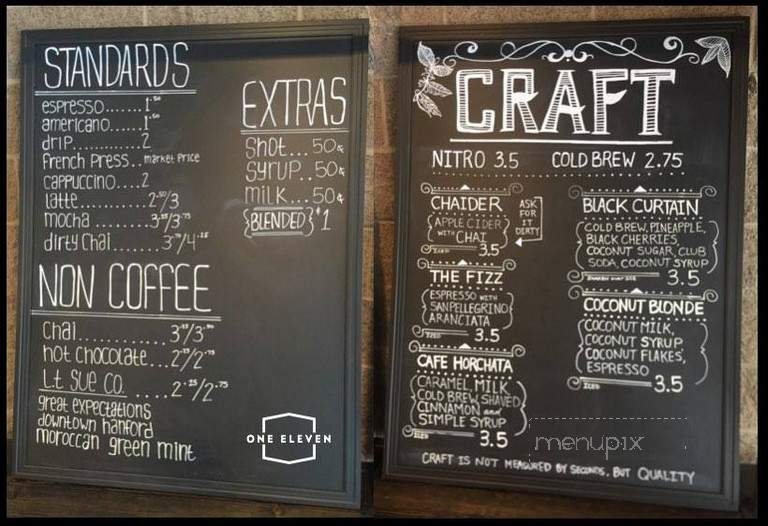 STANDARDS
espresso.......1.50
americano.....1.50
drip..............2
french press..market price
cappuccino....2
latte............2.50/3
mocha
dirty chai
NON COFFEE
chai
hot chocolate
L.t. Sue CO.
great expectations
downtown hanford
moroccan green mint
EXTRAS
shot...50¢
syrup..50¢
milk...50¢
{BLENDED} $1
ONE ELEVEN
CRAFT
NITRO 3.5 COLD BREW 2.75
CHAIDER
APPLE CIDER
WITH CHAI
ICED 3.5
ASK
FOR
IT
DIRTY
THE FIZZ
ESPRESSO WITH
SANPELLEGRINO
ARANCIATA
ICED 3.5
CAFE HORCHATA
CARAMEL, MILK,
COLD BREW, SHAVED
CINNAMON and
SIMPLE SYRUP
ICED 3.5
BLACK CURTAIN
COLD BREW, PINEAPPLE,
BLACK CHERRIES,
COCONUT SUGAR, CLUB
SODA, COCONUT SYRUP
3.5
COCONUT BLONDE
COCONUT MILK,
COCONUT SYRUP
COCONUT FLAKES,
ESPRESSO
ICED 3.5
menupix
CRAFT IS NOT MEASURED BY SECONDS, BUT QUALITY